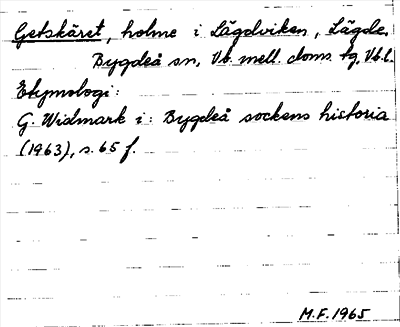 Getskäret, holme i Lägdviken, Lägde,
Bygdeå sn, Vb. mell. doms. tg, Vb. l.
Etymologi:
G. Widmark i: Bygdeå sockens historia
(1963), s. 65 f.
M.F. 1965